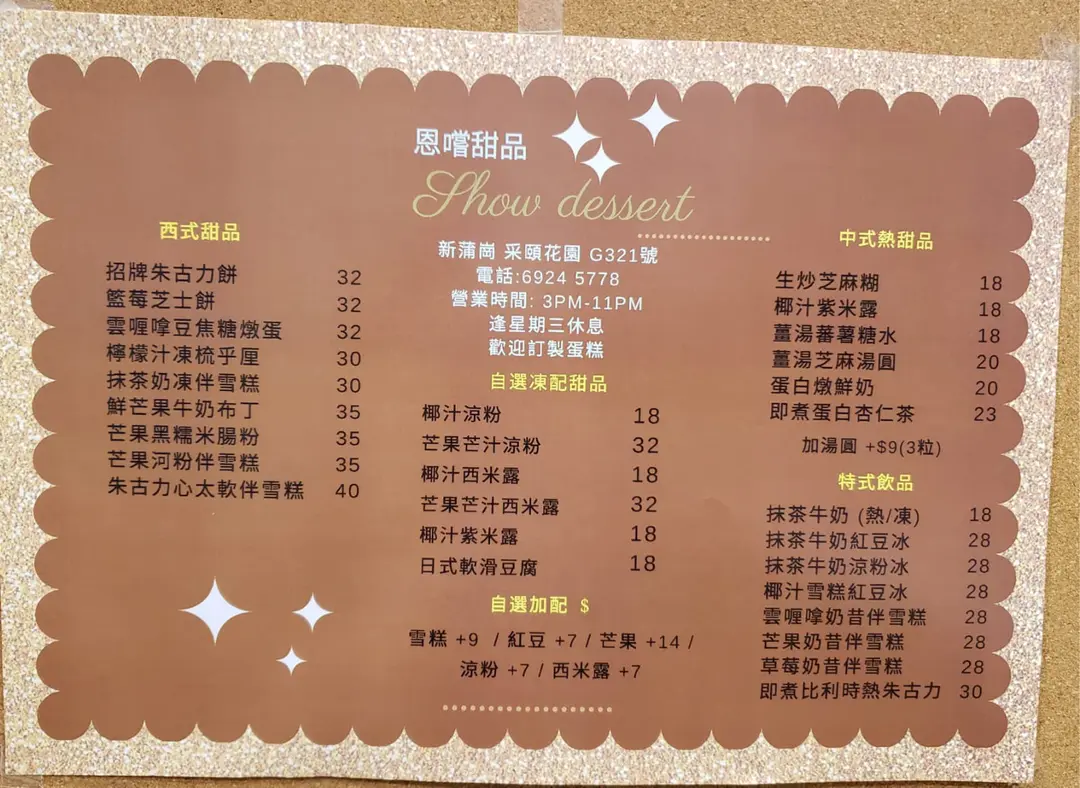 恩嚐甜品
Show dessert
新蒲崗 采頤花園 G321號
電話:6924 5778
營業時間: 3PM-11PM
逢星期三休息
歡迎訂製蛋糕
西式甜品
招牌朱古力餅 32
籃莓芝士餅 32
雲喱嗱豆焦糖燉蛋 32
檸檬汁凍梳乎厘 30
抹茶奶凍伴雪糕 30
鮮芒果牛奶布丁 35
芒果黑糯米腸粉 35
芒果河粉伴雪糕 35
朱古力心太軟伴雪糕 40
自選凍配甜品
椰汁涼粉 18
芒果芒汁涼粉 32
椰汁西米露 18
芒果芒汁西米露 32
椰汁紫米露 18
日式軟滑豆腐 18
自選加配 $
雪糕 +9 / 紅豆 +7 / 芒果 +14 /
涼粉 +7 / 西米露 +7
中式熱甜品
生炒芝麻糊 18
椰汁紫米露 18
薑湯蕃薯糖水 18
薑湯芝麻湯圓 20
蛋白燉鮮奶 20
即煮蛋白杏仁茶 23
加湯圓 +$9(3粒)
特式飲品
抹茶牛奶 (熱/凍) 18
抹茶牛奶紅豆冰 28
抹茶牛奶涼粉冰 28
椰汁雪糕紅豆冰 28
雲喱嗱奶昔伴雪糕 28
芒果奶昔伴雪糕 28
草莓奶昔伴雪糕 28
即煮比利時熱朱古力 30